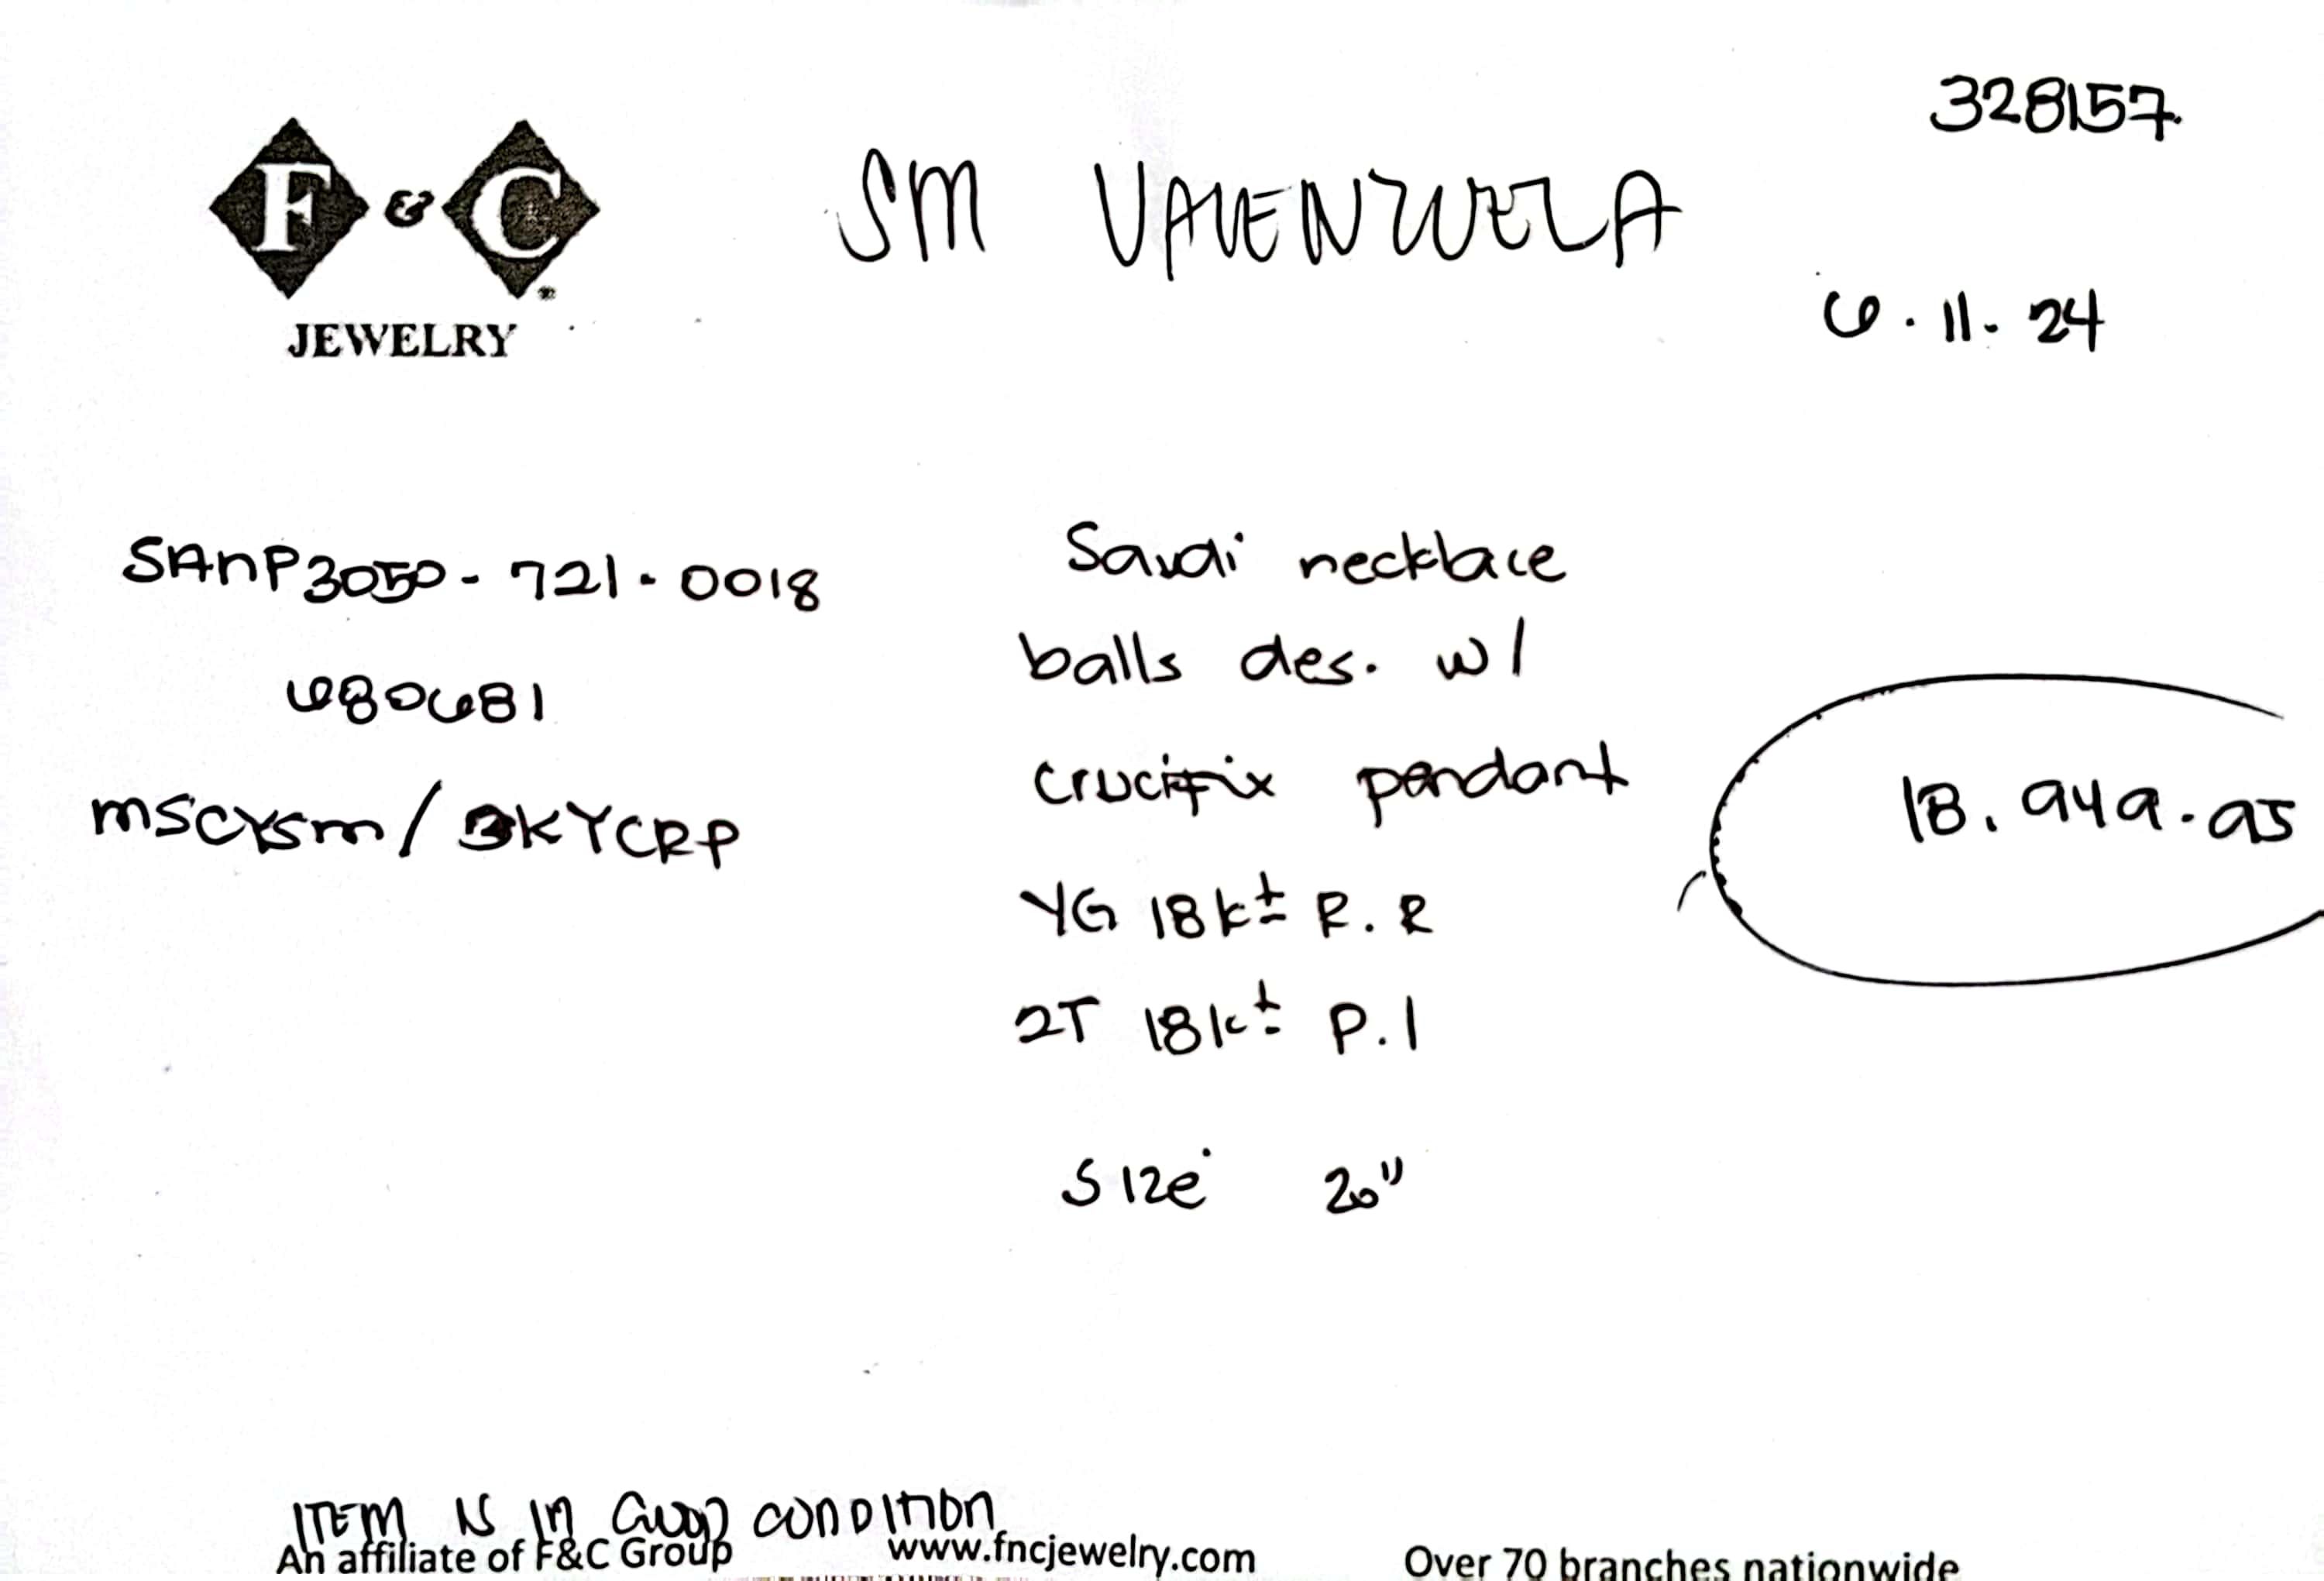 328157.
F & C
SM VALENZUELA
JEWELRY
6.11.24
SANP3050-721-0018
Saudi necklace
680681
balls des. w/
MSCYSM/3KYCRP
crucifix pendant
18,949.95
YG 18kt R.R
2T 18kt P.I
Size 20"
ITEM IS IN GOOD CONDITION
An affiliate of F&C Group www.fncjewelry.com Over 70 branches nationwide